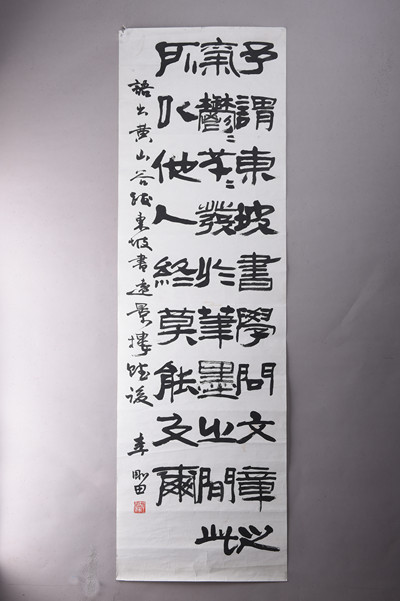 予謂東坡書學問文章之
氣鬱鬱芊芊發於筆墨之間此
所以他人終莫能及爾
語出黃山谷跋東坡書遠景樓賦後
李剛田